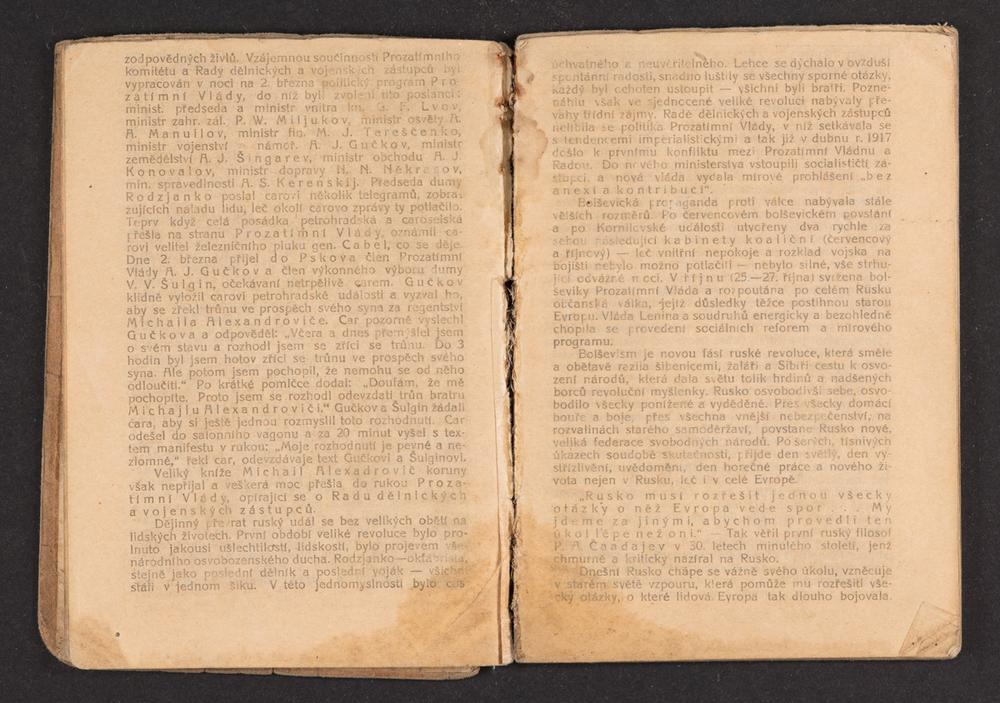 zodpovědných živlů. Vzájemnou součinností Prozatímního
komitétu a Rady dělnických a vojenských zástupců byl
vypracován v noci na 2. března politický program Pro-
zatímní Vlády, do níž byli zvoleni tito poslanci:
minist. předseda a ministr vnitra kn. G. F. Lvov,
ministr zahr. zál. P. W. Miljukov, ministr osvěty A.
A. Manuilov, ministr fin. M. J. Tereščenko,
ministr vojenství námoř. A. J. Gučkov, ministr
zemědělství A. J. Šingarev, ministr obchodu A. J.
Konovalov, ministr dopravy N. N. Někrasov,
min. spravedlnosti A. S. Kerenskij. Předseda dumy
Rodzjanko poslal carovi několik telegramů, zobra-
zujících náladu lidu, leč okolí carovo zprávy ty potlačilo.
Teprv když celá posádka petrohradská a caroselská
přešla na stranu Prozatímní Vlády, oznámil ca-
rovi velitel železničního pluku gen. Cabel, co se děje.
Dne 2. března přijel do Pskova člen Prozatímní
Vlády A. J. Gučkov a člen výkonného výboru dumy
V. V. Šulgin, očekávaní netrpělivě carem. Gučkov
klidně vyložil carovi petrohradské události a vyzval ho,
aby se zřekl trůnu ve prospěch svého syna za regentství
Michaila Alexandroviče. Car pozorně vyslechl
Gučkova a odpověděl: „Včera a dnes přemýšlel jsem
o svém stavu a rozhodl jsem se zříci se trůnu. Do 3
hodin byl jsem hotov zříci se trůnu ve prospěch svého
syna. Ale potom jsem pochopil, že nemohu se od něho
odloučiti." Po krátké pomlčce dodal: „Doufám, že mě
pochopíte. Proto jsem se rozhodl odevzdati trůn bratru
Michajlu Alexandroviči." Gučkov a Šulgin žádali
cara, aby si ještě jednou rozmyslil toto rozhodnutí. Car
odešel do salonního vagonu a za 20 minut vyšel s tex-
tem manifestu v rukou: „Moje rozhodnutí je pevné a ne-
zlomné," řekl car, odevzdávaje text Gučkovi a Šulginovi.
Veliký kníže Michail Alexadrovič koruny
však nepřijal a veškerá moc přešla do rukou Proza-
tímní Vlády, opírající se o Radu dělnických
a vojenských zástupců.
Dějinný převrat ruský udál se bez velikých obětí na
lidských životech. První období veliké revoluce bylo pro-
lnuto jakousi ušlechtilostí, lidskostí, bylo projevem vše-
národního osvobozenského ducha. Rodzjanko—okťabrista,
stejně jako poslední dělník a poslední voják — všichni
stáli v jednom šiku. V této jednomyslnosti bylo cos
úchvatného a neuvěřitelného. Lehce se dýchalo v ovzduší
spontánní radosti, snadno luštily se všechny sporné otázky,
každý byl ochoten ustoupit — všichni byli bratři. Pozne-
náhlu však ve sjednocené veliké revoluci nabývaly pře-
vahy třídní zájmy. Radě dělnických a vojenských zástupců
nelíbila se politika Prozatímní Vlády, v níž setkávala se
s tendencemi imperialistickými a tak již v dubnu r. 1917
došlo k prvnímu konfliktu mezi Prozatímní Vládnu a
Radou. Do nového ministerstva vstoupili socialističtí zá-
stupci a nová vláda vydala mírové prohlášení „bez
anexí a kontribucí".
Bolševická propaganda proti válce nabývala stále
větších rozměrů. Po červencovém bolševickém povstání
a po Kornilovské události utvořeny dva rychle za
sebou následující kabinety koaliční (červencový
a říjnový) — leč vnitřní nepokoje a rozklad vojska na
bojišti nebylo možno potlačiti — nebylo silné, vše strhu-
jící odvážné moci. V říjnu (25—27. října) svržena bol-
ševiky Prozatímní Vláda a rozpoutána po celém Rusku
občanská válka, jejíž důsledky těžce postihnou starou
Evropu. Vláda Lenina a soudruhů energicky a bezohledně
chopila se provedení sociálních reforem a mírového
programu.
Bolševism je novou fásí ruské revoluce, která směle
a obětavě razila šibenicemi, žaláři a Sibiří cestu k osvo-
zení národů, která dala světu tolik hrdinů a nadšených
borců revoluční myšlenky. Rusko osvobodivši sebe, osvo-
bodilo všecky ponížené a vyděděné. Přes všecky domácí
bouře a boje, přes všechna vnější nebezpečenství, na
rozvalinách starého samoděržaví, povstane Rusko nové,
veliká federace svobodných národů. Po šerých, tísnivých
úkazech soudobé skutečnosti, přijde den světlý, den vy-
střízlivění, uvědomění, den horečné práce a nového ži-
vota nejen v Rusku, leč i v celé Evropě.
„Rusko musí rozřešit jednou všecky
otázky o něž Evropa vede spor . . . My
jdeme za jinými, abychom provedli ten
úkol lépe než oni." — Tak věřil první ruský filosof
P. A. Čaadajev v 30. letech minulého století, jenž
chmurně a kriticky nazíral na Rusko.
Dnešní Rusko chápe se vážně svého úkolu, vzněcuje
v starém světě vzpouru, která pomůže mu rozřešiti vše-
cky otázky, o které lidová Evropa tak dlouho bojovala.